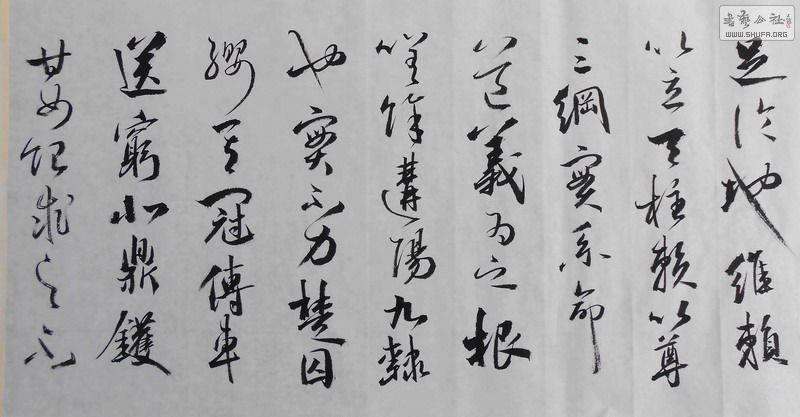 足论地維賴
以立天柱賴以尊
三綱實系命
道義为之根
嗟餘遘陽九隸
也實不力楚囚
纓其冠傳車
送窮北鼎鑊
甘如飴求之不
書藝公社
WWW.SHUFA.ORG